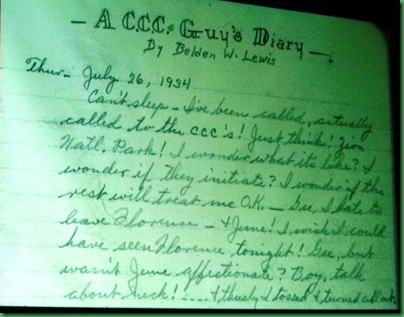 - A C.C.C. Guy's Diary -.
By Belden W. Lewis
Thur- July 26, 1934
Can't sleep - I've been called, actually
called to the CCC's! Just think! Zion
Natl. Park! I wonder what its like? I
wonder if they initiate? I wonder if the
rest will treat me O.K. - Gee, I hate to
leave Florence - & June! I wish I could
have seen Florence tonight! Gee, but
wasn't June affectionate? Boy, talk
about neck! .... & thusly I tossed & turned all nt.